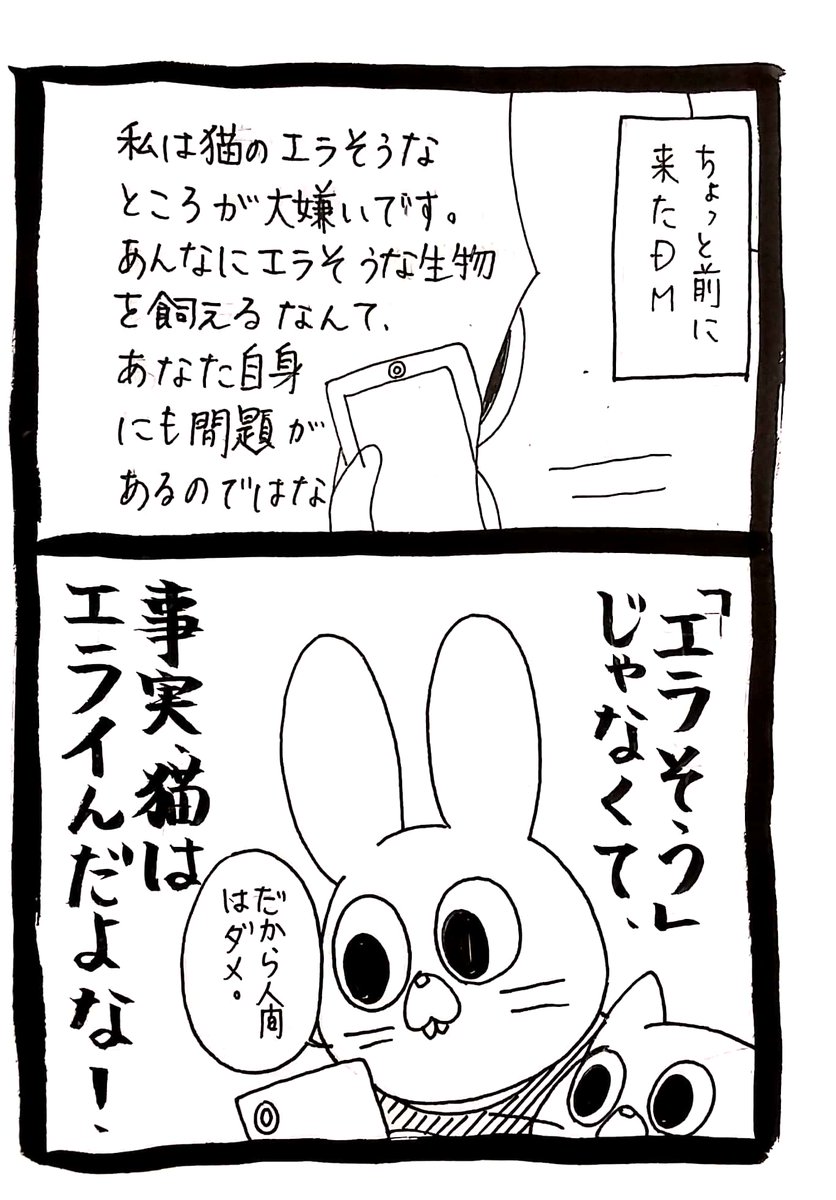 ちょっと前に
来たDM
私は猫のエラそうな
ところが大嫌いです。
あんなにエラそうな生物
を飼えるなんて、
あなた自身
にも問題が
あるのではな
「エラそう」
じゃなくて、
事実、猫は
エライんだよな！
だから人間
はダメ。